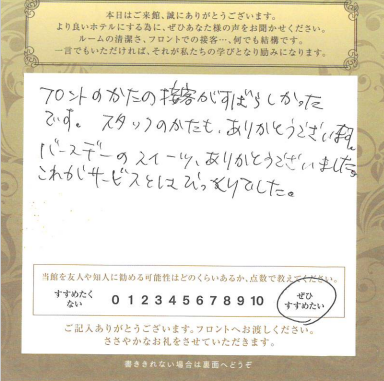 本日はご来館、誠にありがとうございます。
より良いホテルにする為に、ぜひあなた様の声をお聞かせください。
ルームの清潔さ、フロントでの接客…、何でも結構です。
一言でもいただければ、それが私たちの学びとなり励みになります。
フロントのかたの接客がすばらしかった
です。スタッフのかたも、ありがとうございます。
バースデーのスイーツ、ありがとうございました。
これがサービスとはびっくりでした。
当館を友人や知人に勧める可能性はどのくらいあるか、点数で教えてください。
すすめたく
ない
0 1 2 3 4 5 6 7 8 9 10
ぜひ
すすめたい
ご記入ありがとうございます。フロントへお渡しください。
ささやかなお礼をさせていただきます。
書ききれない場合は裏面へどうぞ